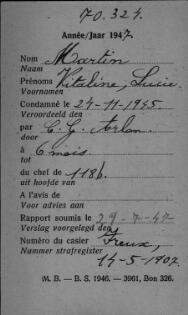 70.324.
Année/Jaar 1947.
Nom Martin
Naam
Prénoms Vitaline, Lucie.
Voornamen
Condamné le 24-11-1945.
Veroordeeld den
par C. G. Arlon.
door
à 6 mois.
tot
du chef de 118b.
uit hoofde van
A l'avis de
Voor advies aan
Rapport soumis le 29-7-47
Verslag voorgelegd den
Numéro du casier Freux,
Nummer strafregister
14-5-1907.
M. B. — B. S. 1946. — 3961, Bon 326.